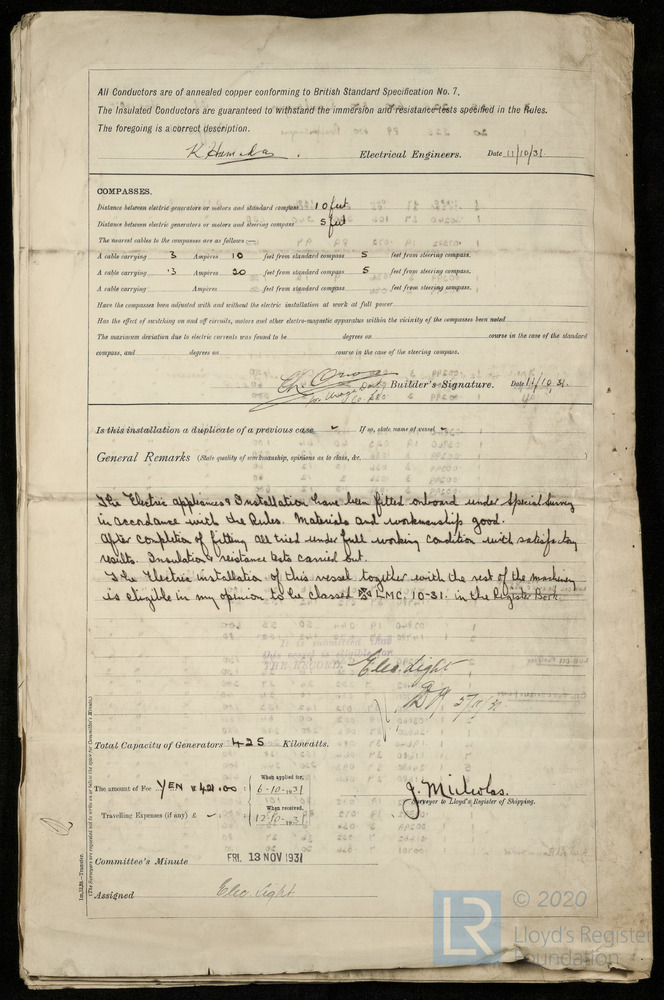 All Conductors are of annealed copper conforming to British Standard Specification No. 7.
The Insulated Conductors are guaranteed to withstand the immersion and resistance tests specified in the Rules.
The foregoing is a correct description.
Electrical Engineers. Date 11/10/31.
COMPASSES.
Distance between electric generators or motors and standard compass 10 feet
Distance between electric generators or motors and steering compass 5 feet
The nearest cables to the compasses are as follows:—
A cable carrying 3 Ampères 10 feet from standard compass 5 feet from steering compass.
A cable carrying 3 Ampères 20 feet from standard compass 5 feet from steering compass.
A cable carrying Ampères feet from standard compass feet from steering compass.
Have the compasses been adjusted with and without the electric installation at work at full power
Has the effect of switching on and off circuits, motors and other electro-magnetic apparatus within the vicinity of the compasses been noted
The maximum deviation due to electric currents was found to be degrees on course in the case of the standard
compass, and degrees on course in the case of the steering compass.
Builder's Signature. Date 11/10/31.
Is this installation a duplicate of a previous case If so, state name of vessel
General Remarks (State quality of workmanship, opinions as to class, &c.)
The Electric appliances & Installation have been fitted onboard under Special Survey
in accordance with the Rules. Materials and workmanship good.
After completion of fitting all tried under full working condition with satisfactory
results. Insulation & resistance tests carried out.
The Electric installation of this vessel together with the rest of the machinery
is eligible in my opinion to be classed LMC. 10-31. in the Register Book.
It is submitted that
this vessel is eligible for
THE RECORD. Elec. Light
Total Capacity of Generators 425 Kilowatts.
The amount of Fee YEN 421.00
When applied for,
6-10-1931
Travelling Expenses (if any) £
When received,
12-10-1931
J. Nicholas.
Surveyor to Lloyd's Register of Shipping.
Committee's Minute FRI. 13 NOV 1931
Assigned Elec. Light
(The Surveyors are requested not to write on or below the space for Committee's Minute.)
1m.11.30.—Transfer.
LR © 2020
Lloyd's Register
Foundation